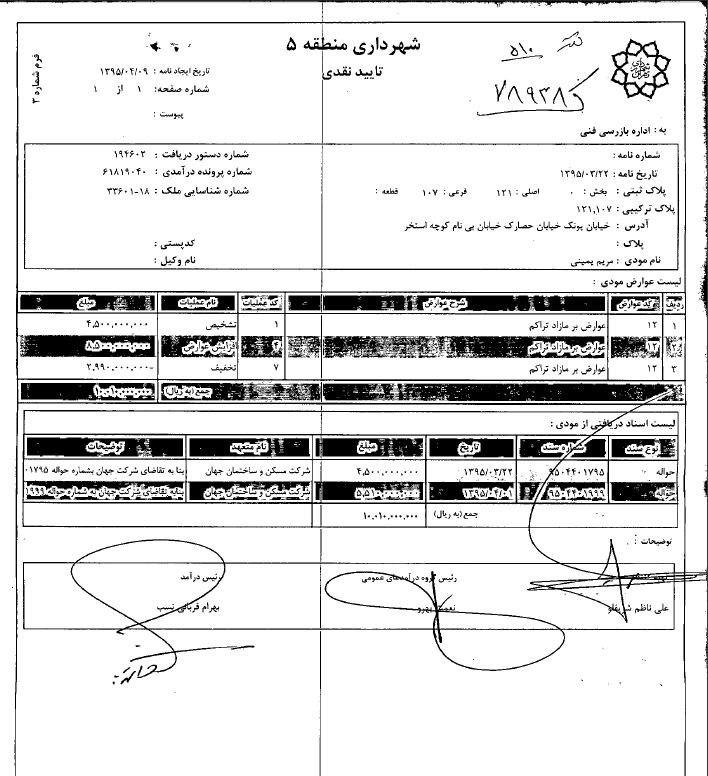 شهرداری منطقه ۵
تایید نقدی
تاریخ ایجاد نامه : ۱۳۹۵/۰۴/۰۹
شماره صفحه: ۱ از ۱
پیوست :
فرم شماره ۳
۵۱۰
۷۸۹۳۸
به : اداره بازرسی فنی
شماره نامه: شماره دستور دریافت : ۱۹۴۶۰۲
تاریخ نامه : ۱۳۹۵/۰۳/۲۲ شماره پرونده درآمدی : ۶۱۸۱۹۰۴۰
پلاک ثبتی : بخش : ۰ اصلی : ۱۲۱ فرعی : ۱۰۷ قطعه : شماره شناسایی ملک : ۱۸-۳۳۶۰۱
پلاک ترکیبی : ۱۲۱,۱۰۷
آدرس : خیابان پونک خیابان حصارک خیابان بی نام کوچه استخر
پلاک : کدپستی :
نام مودی : مریم یمینی نام وکیل :
لیست عوارض مودی :
ردیف کد عوارض شرح عوارض کد عملیات نام عملیات مبلغ
۱ ۱۲ عوارض بر مازاد تراکم ۱ تشخیص ۴,۵۰۰,۰۰۰,۰۰۰
۲ ۱۲ عوارض بر مازاد تراکم ۴ افزایش عوارض ۸,۵۰۰,۰۰۰,۰۰۰
۳ ۱۲ عوارض بر مازاد تراکم ۷ تخفیف ۲,۹۹۰,۰۰۰,۰۰۰-
جمع(به ریال) ۱۰,۰۱۰,۰۰۰,۰۰۰
لیست اسناد دریافتی از مودی :
نوع سند شماره سند تاریخ مبلغ نام متعهد توضیحات
حواله ۹۵۰۴۴۰۱۷۹۵ ۱۳۹۵/۰۳/۲۲ ۴,۵۰۰,۰۰۰,۰۰۰ شرکت مسکن و ساختمان جهان بنا به تقاضای شرکت جهان بشماره حواله ۰۱۷۹۵
حواله ۹۵۰۴۴۰۱۹۹۹ ۱۳۹۵/۰۴/۰۱ ۵,۵۱۰,۰۰۰,۰۰۰ شرکت مسکن و ساختمان جهان بنابه تقاضای شرکت جهان به شماره حواله ۱۹۹۹
جمع(به ریال) ۱۰,۰۱۰,۰۰۰,۰۰۰
توضیحات :
رئیس گروه درآمدهای عمومی رئیس درآمد
علی ناظم بهرام قربانی نسب